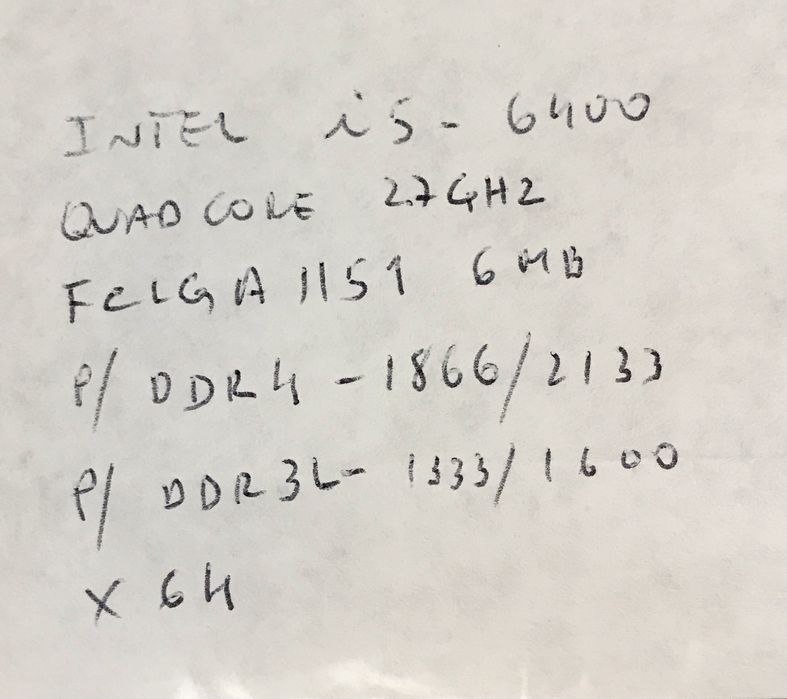 INTEL i5 - 6400
QUAD CORE 2.7 GHZ
FCLGA 1151 6 MB
P/ DDR4 - 1866/2133
P/ DDR3L- 1333/1600
X 64